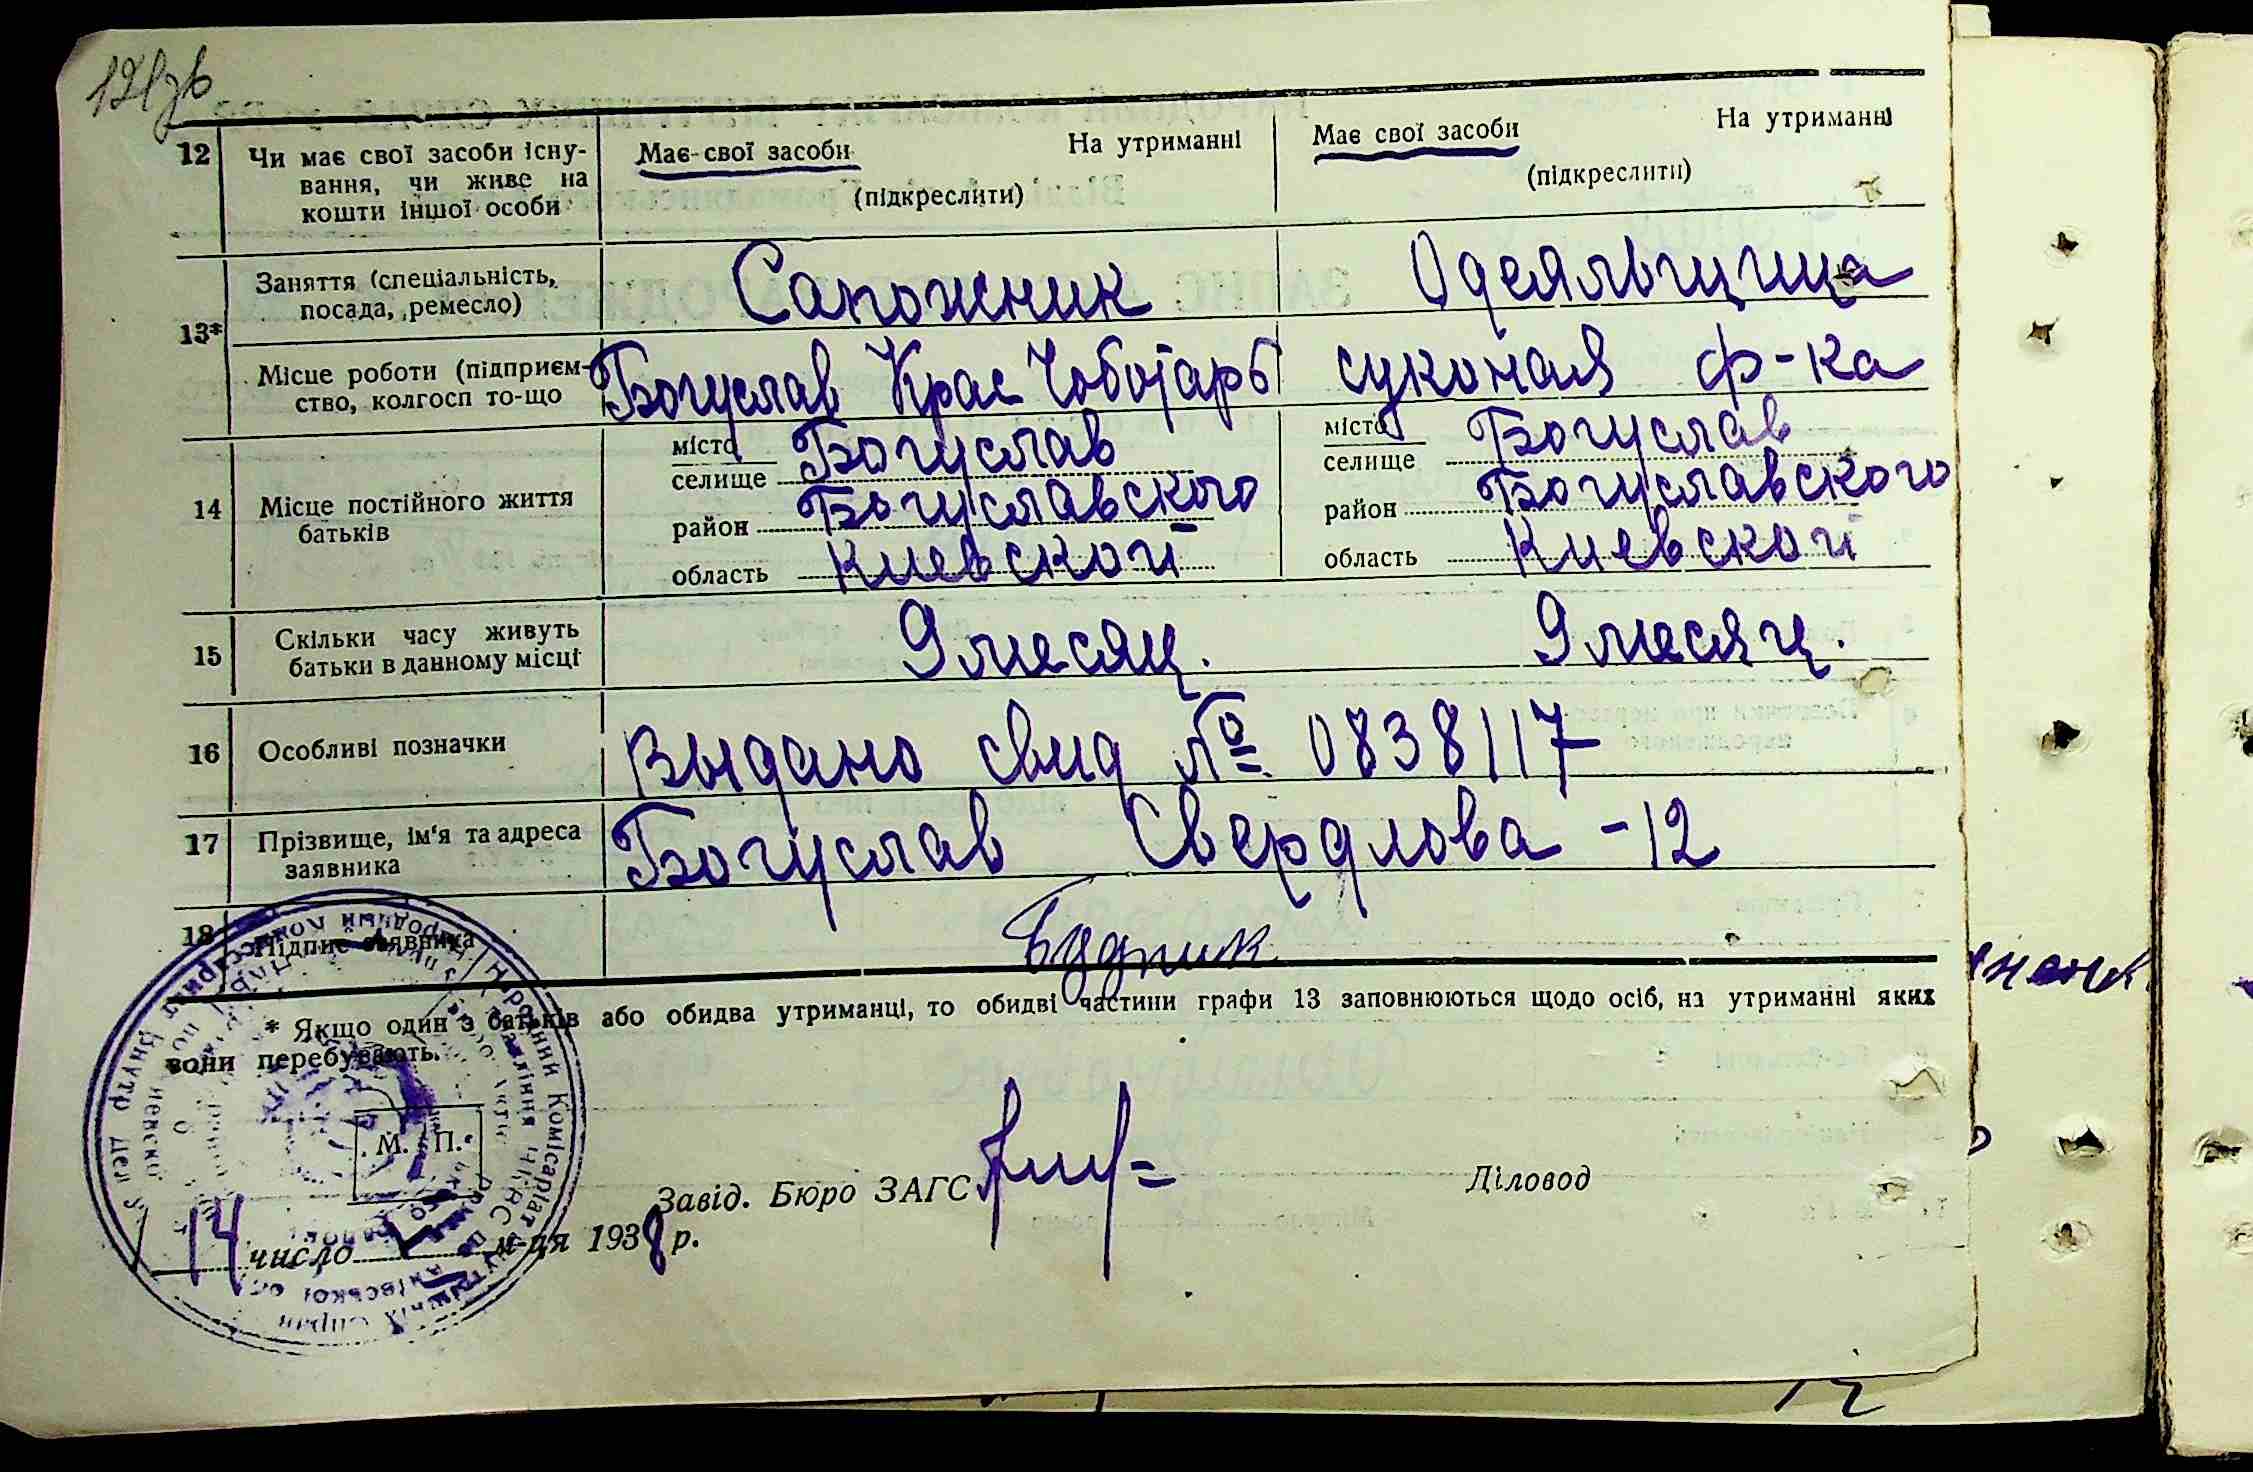 121зв
12 Чи має свої засоби існу- Має свої засоби На утриманні Має свої засоби На утриманні
вання, чи живе на (підкреслити) (підкреслити)
кошти іншої особи
13* Заняття (спеціальність, Сапожник Одеяльщица
посада, ремесло)
Місце роботи (підприєм- Богуслав Крас Чоботарь суконая ф-ка
ство, колгосп то-що
14 Місце постійного життя місто Богуслав місто Богуслав
батьків селище селище
район Богуславского район Богуславского
область Киевской область Киевской
15 Скільки часу живуть 9 месяц. 9 месяц.
батьки в данному місці
16 Особливі позначки Выдано свид № 0838117
17 Прізвище, ім'я та адреса Богуслав Свердлова - 12
заявника
18 Підпис заявника Будник
* Якщо один з батьків або обидва утриманці, то обидві частини графи 13 заповнюються щодо осіб, на утриманні яких
вони перебувають.
М. П.
Завід. Бюро ЗАГС Діловод
14 число м-ця 1938 р.